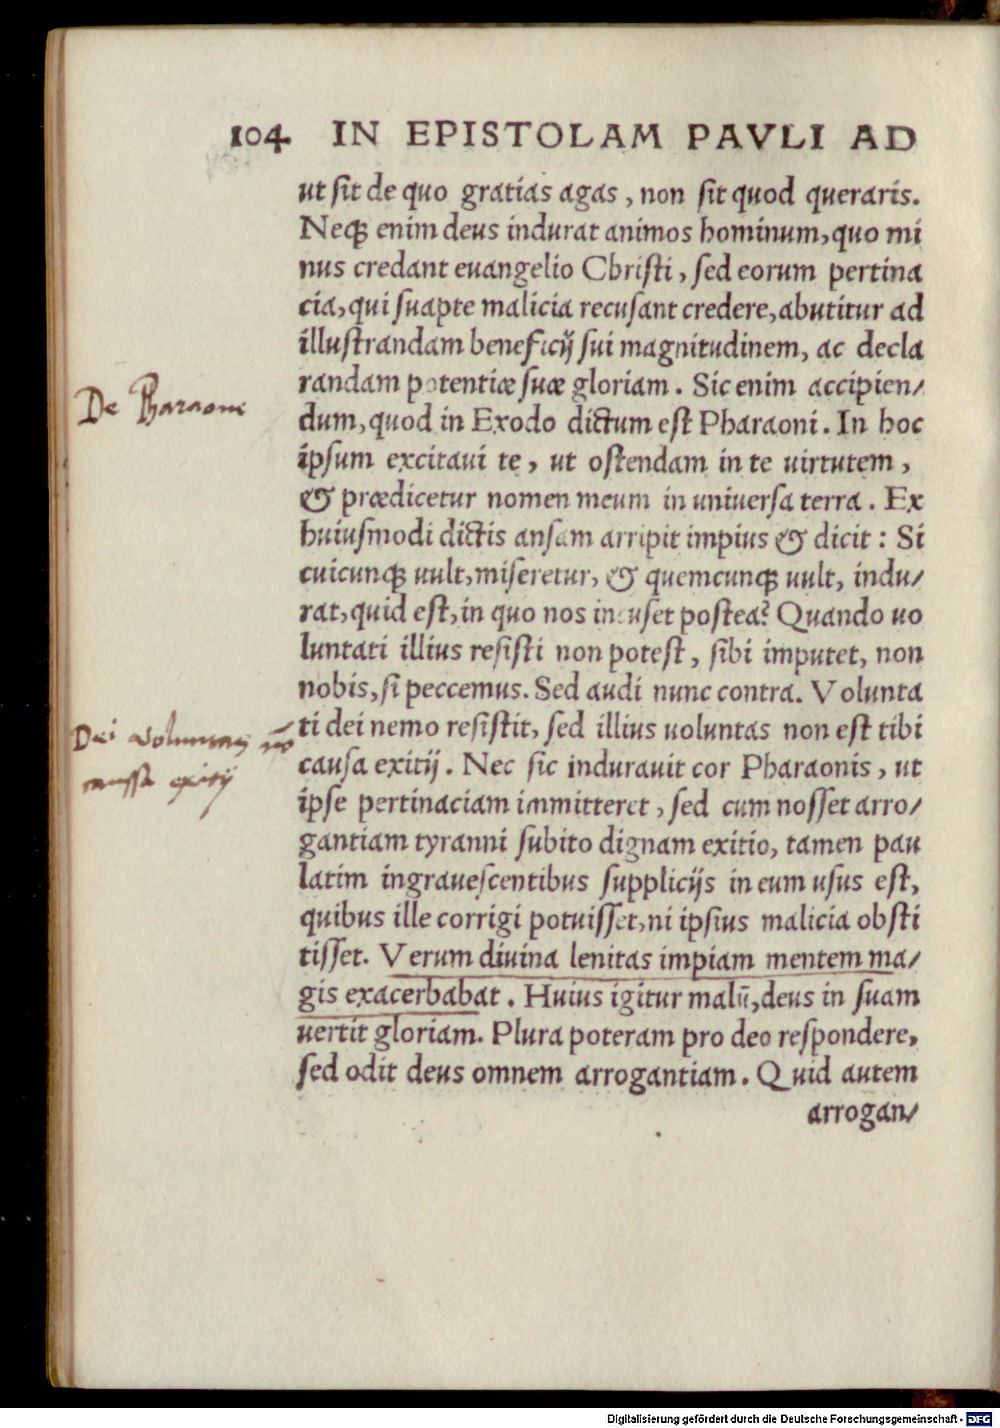 104 IN EPISTOLAM PAVLI AD
ut sit de quo gratias agas, non sit quod queraris.
Neqꝫ enim deus indurat animos hominum, quo mi
nus credant euangelio Christi, sed eorum pertina
cia, qui suapte malicia recusant credere, abutitur ad
illustrandam beneficij sui magnitudinem, ac decla
randam potentiæ suæ gloriam. Sic enim accipien/
De Pharaone
dum, quod in Exodo dictum est Pharaoni. In hoc
ipsum excitaui te, ut ostendam in te uirtutem,
& prædicetur nomen meum in uniuersa terra. Ex
huiusmodi dictis ansam arripit impius & dicit: Si
cuicunqꝫ uult, miseretur, & quemcunqꝫ uult, indu/
rat, quid est, in quo nos incuset postea? Quando uo
luntati illius resisti non potest, sibi imputet, non
nobis, si peccemus. Sed audi nunc contra. Volunta
ti dei nemo resistit, sed illius uoluntas non est tibi
Dei voluntas nō
causa exitij
causa exitij. Nec sic indurauit cor Pharaonis, ut
ipse pertinaciam immitteret, sed cum nosset arro/
gantiam tyranni subito dignam exitio, tamen pau
latim ingrauescentibus supplicijs in eum usus est,
quibus ille corrigi potuisset, ni ipsius malicia obsti
tisset. Verum diuina lenitas impiam mentem ma/
gis exacerbabat. Huius igitur malū, deus in suam
uertit gloriam. Plura poteram pro deo respondere,
sed odit deus omnem arrogantiam. Quid autem
arrogan/
Digitalisierung gefördert durch die Deutsche Forschungsgemeinschaft - DFG